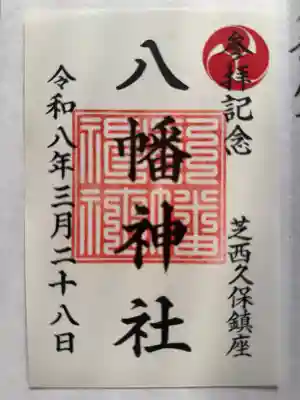 参拝記念
芝西久保鎮座
八幡神社
令和八年三月二十八日